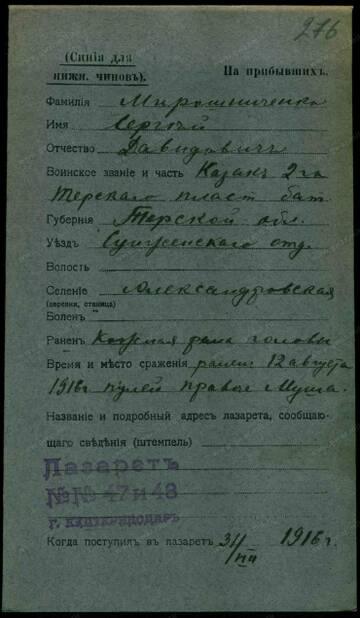 276
(Синія для
нижн. чиновъ).
На прибывшихъ.
Фамилія Мирошниченко
Имя Сергѣй
Отчество Давыдовичъ
Воинское званіе и часть Казакъ 2го
Терскаго пласт. бат.
Губернія Терской обл.
Уѣздъ Сунженскаго отд.
Волость
Селеніе Александровская
(деревня, станица)
Боленъ
Раненъ рана головы
Время и мѣсто сраженія раненъ 12 августа
1916г пулей правое
Названіе и подробный адресъ лазарета, сообщаю-
щаго свѣдѣнія (штемпель)
Лазаретъ
№№ 47 и 48
г. Екатеринодаръ
Когда поступилъ въ лазаретъ 31/VIII 1916г.